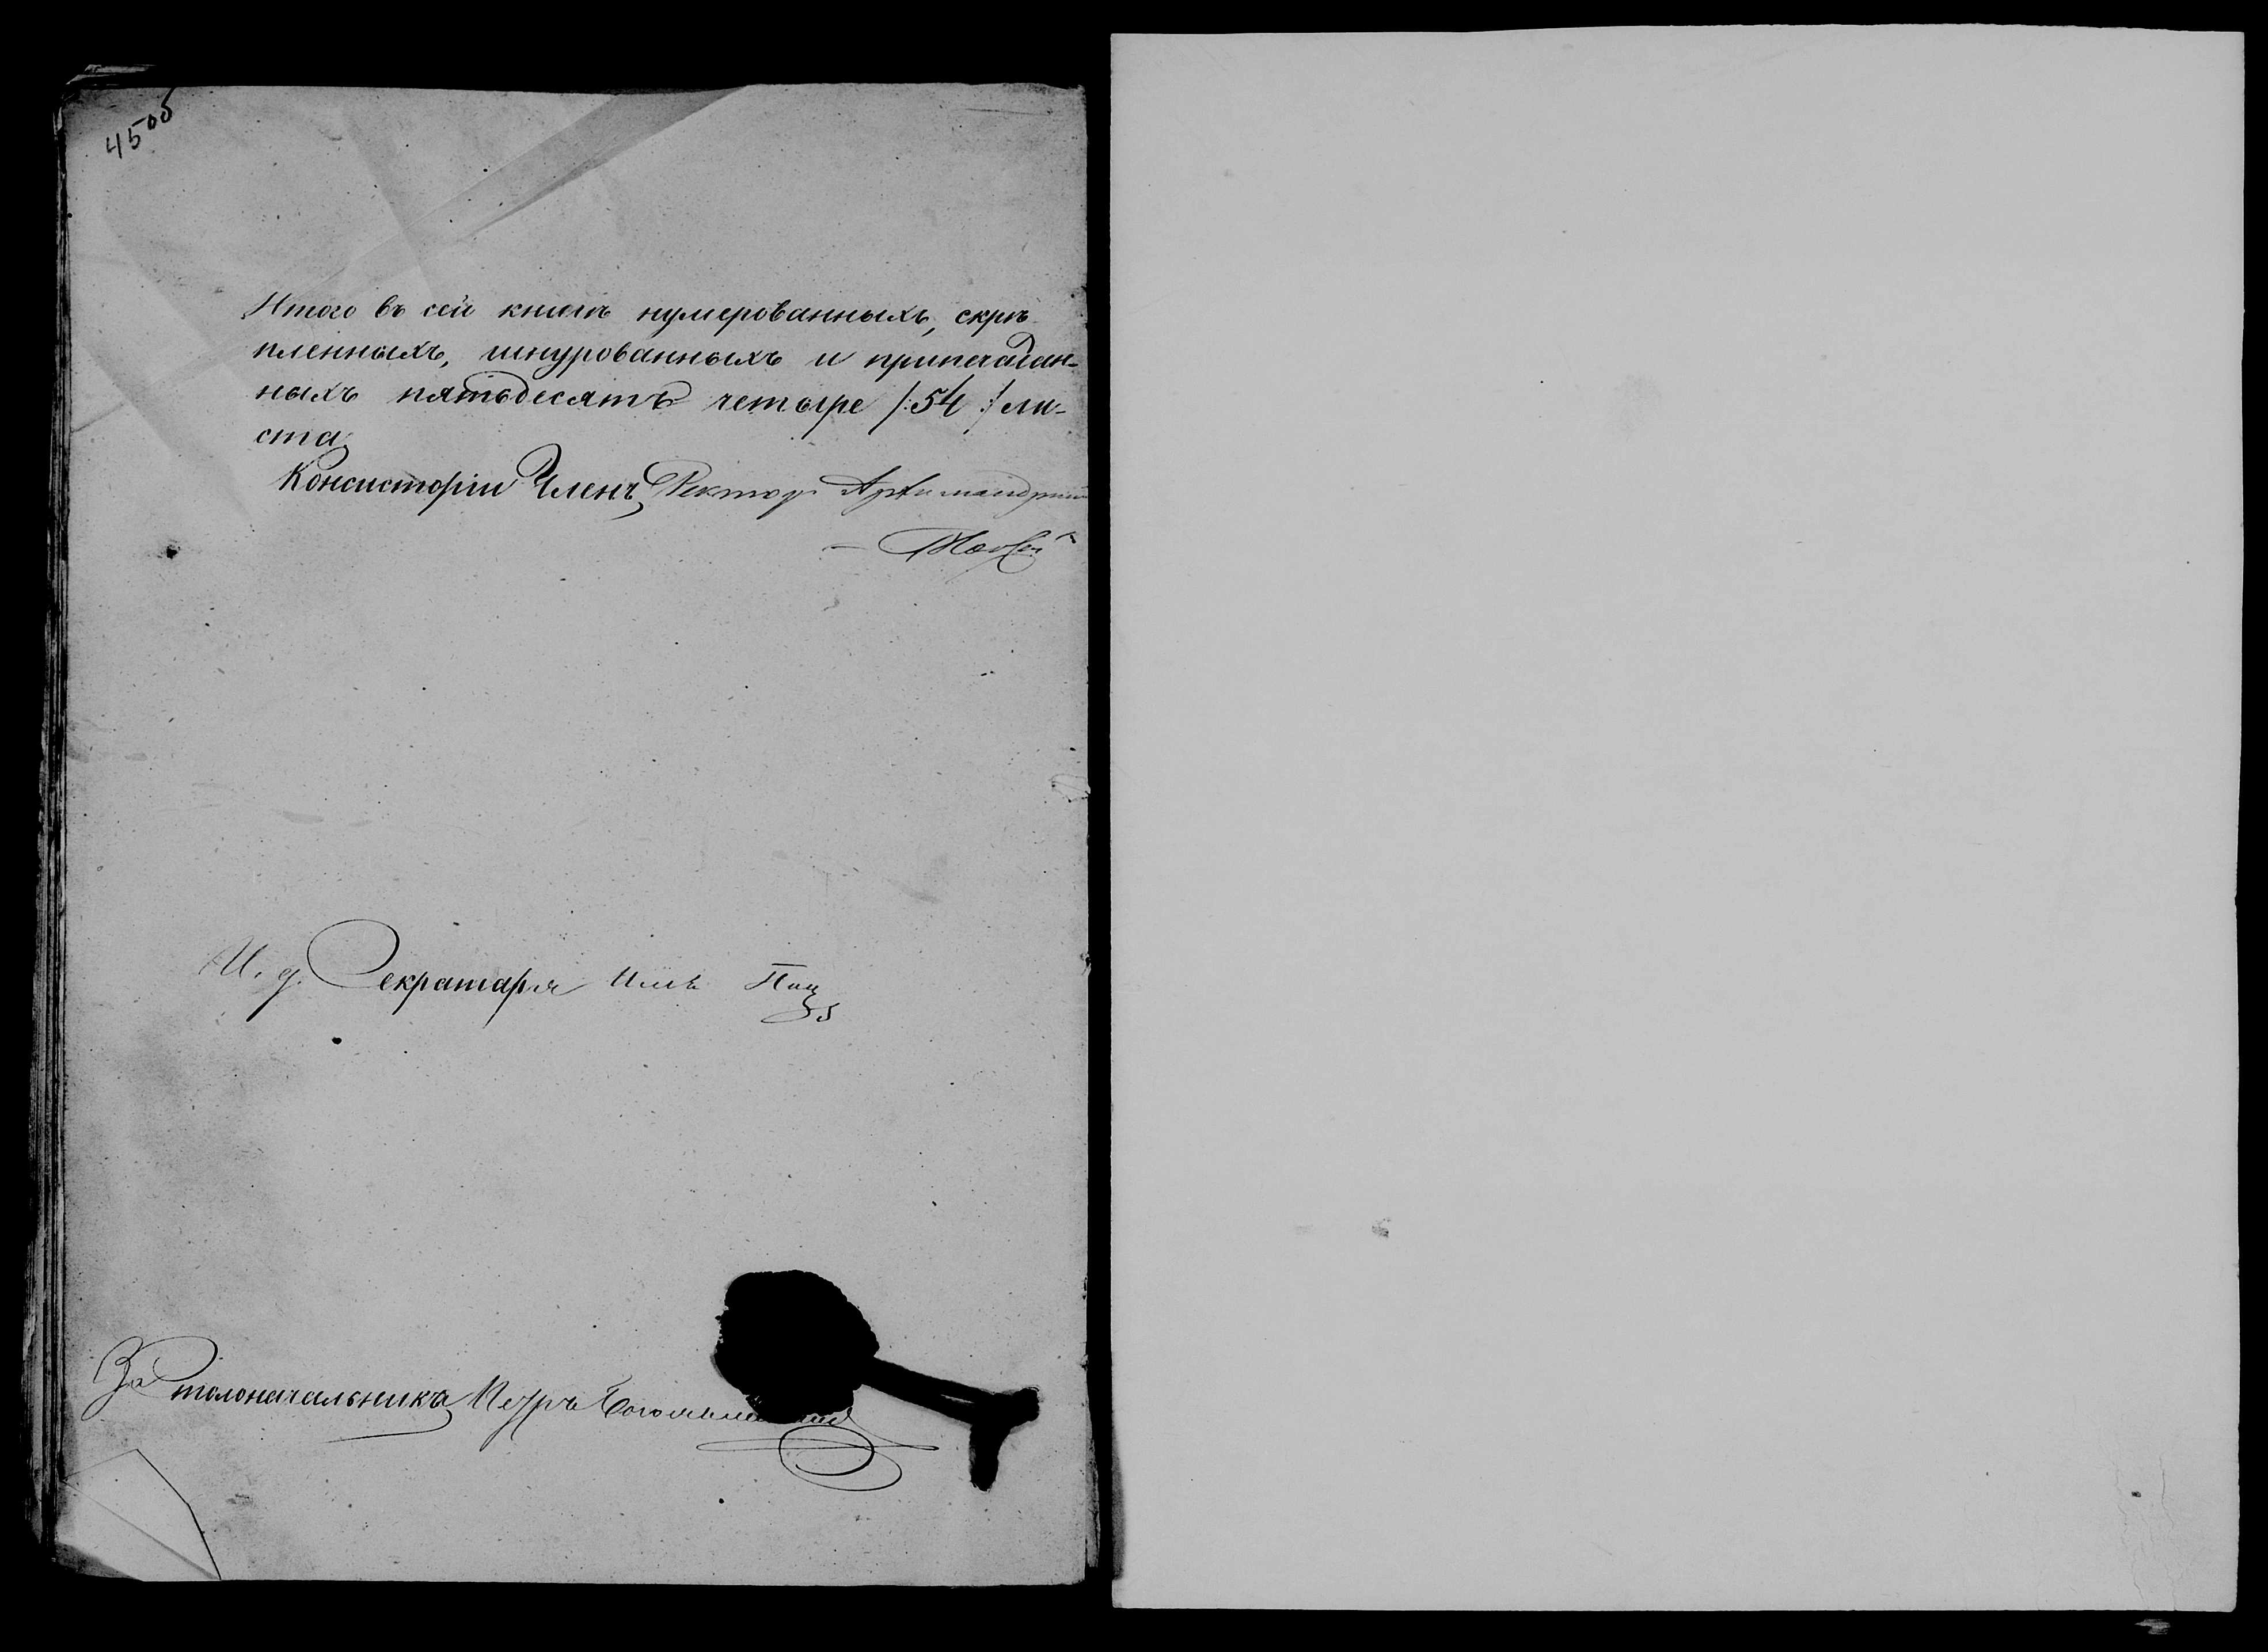 45об
Итого въ сей книгѣ нумерованныхъ, скрѣ-
пленныхъ, шнурованныхъ и припечатан-
ныхъ пятьдесятъ четыре /:54:/ ли-
ста.
Консисторіи Членъ, Ректоръ Архимандритъ
И. д. Секретаря
За Столоначальника Петръ